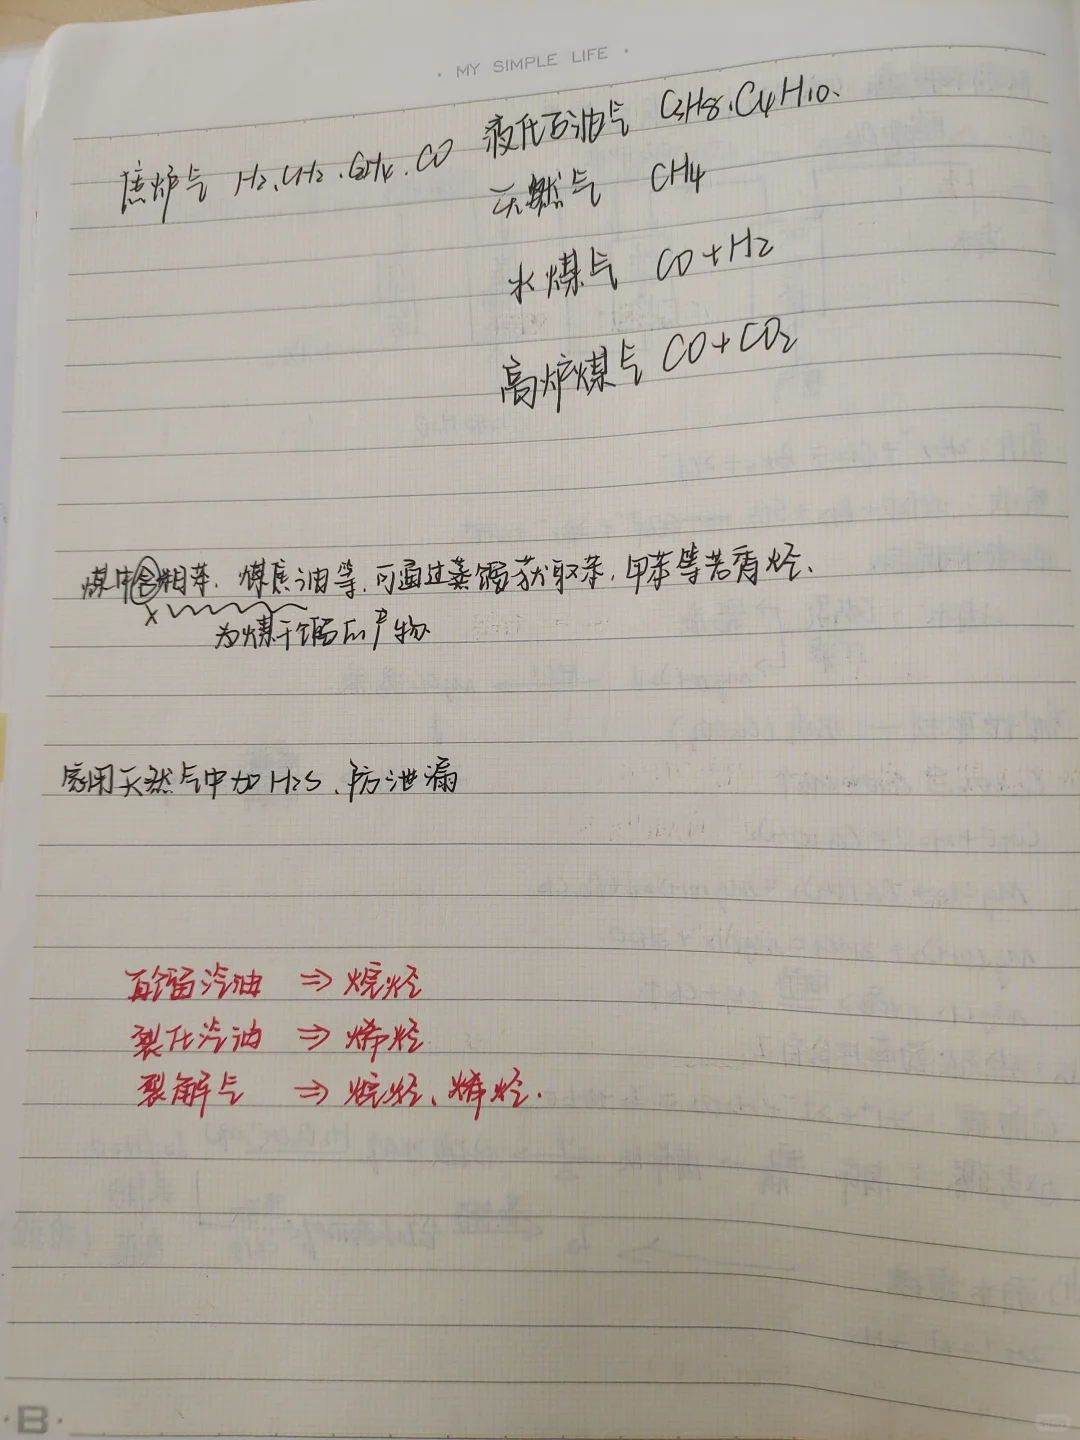 · MY SIMPLE LIFE ·
焦炉气 H2、CH2、C2H4、CO
液化石油气 C3H8、C4H10、
天燃气 CH4
水煤气 CO+H2
高炉煤气 CO+CO2
煤中含粗苯、煤焦油等,可通过蒸馏获取苯,甲苯等芳香烃、
X
为煤干馏的产物
家用天然气中加H2S、防泄漏
直馏汽油 ⇒ 烷烃
裂化汽油 ⇒ 烯烃
裂解气 ⇒ 烷烃、烯烃.
·B·